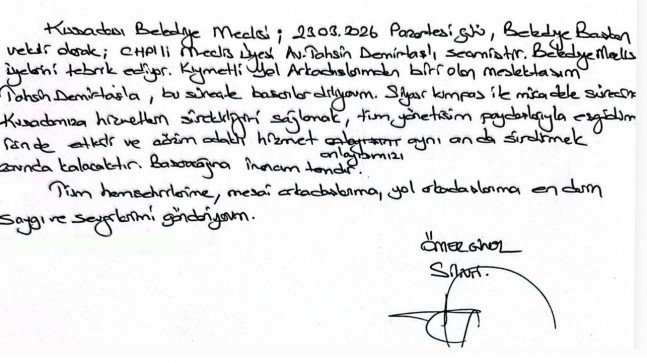 Kuşadası Belediye Meclisi; 23.03.2026 Pazartesi günü, Belediye Başkan
vekili olarak; CHP'li Meclis Üyesi Av. Tahsin Demirtaş'ı seçmiştir. Belediye Meclis
üyelerini tebrik ediyor. Kıymetli Yol Arkadaşlarımdan biri olan meslektaşım
Tahsin Demirtaş'a, bu süreçte başarılar diliyorum. Siyasi kumpas ile mücadele sürecinin
Kuşadamıza hizmetlerin sürekliliğini sağlamak, tüm yönetişim paydaşlarıyla eşgüdüm
içinde etkili ve çözüm odaklı hizmet aynı anda sürdürmek
anlayışımızı
zorunda kalacaktır. Başaracağına inancım tamdır.
Tüm hemşehrilerime, mesai arkadaşlarıma, yol arkadaşlarıma en derin
saygı ve sevgilerimi gönderiyorum.
ÖMER GÜNEL
Silivri.